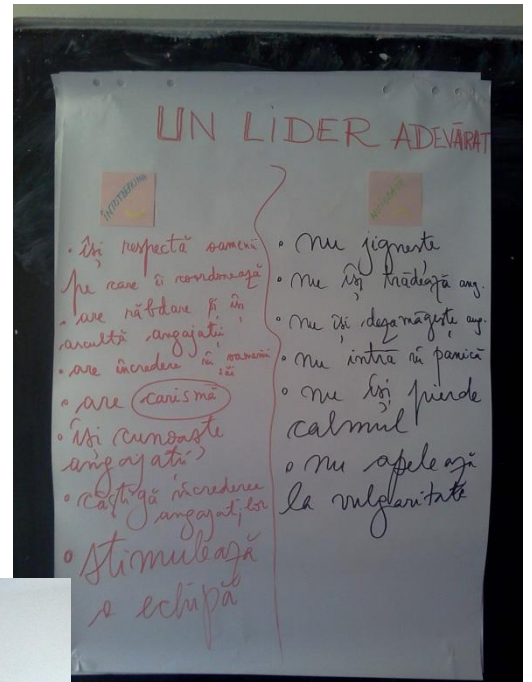 UN LIDER ADEVĂRAT
ÎNTOTDEAUNA
• își respectă oamenii
pe care îi coordonează
• are răbdare și îi
ascultă angajații
• are încredere în oamenii
săi
• are carismă
• își cunoaște
angajații
• câștigă încrederea
angajaților
• stimulează
o echipă
NICIODATĂ
• nu jignește
• nu își trădează ang.
• nu își dezamăgește ang.
• nu intră în panică
• nu își pierde
calmul
• nu apelează
la vulgaritate